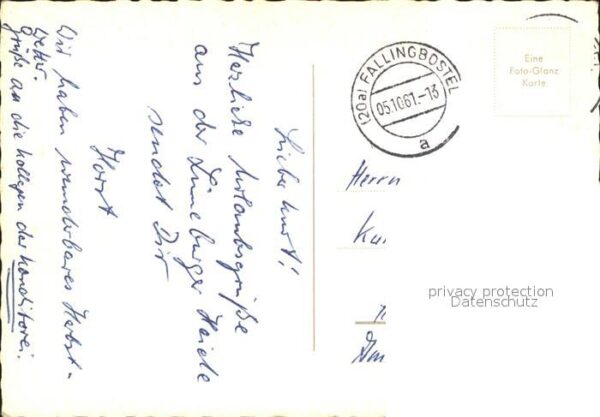 Lieber Kurt!
Herzliche Urlaubsgrüße
aus der Lüneburger Heide
sendet Dir
Horst
Wir haben wunderbares Herbst-
wetter.
Grüße an die Kollegen der Konditorei.
(20a) FALLINGBOSTEL
05.10.61.-13
a
Eine
Foto-Glanz
Karte
Herrn
Ku
privacy protection
Datenschutz